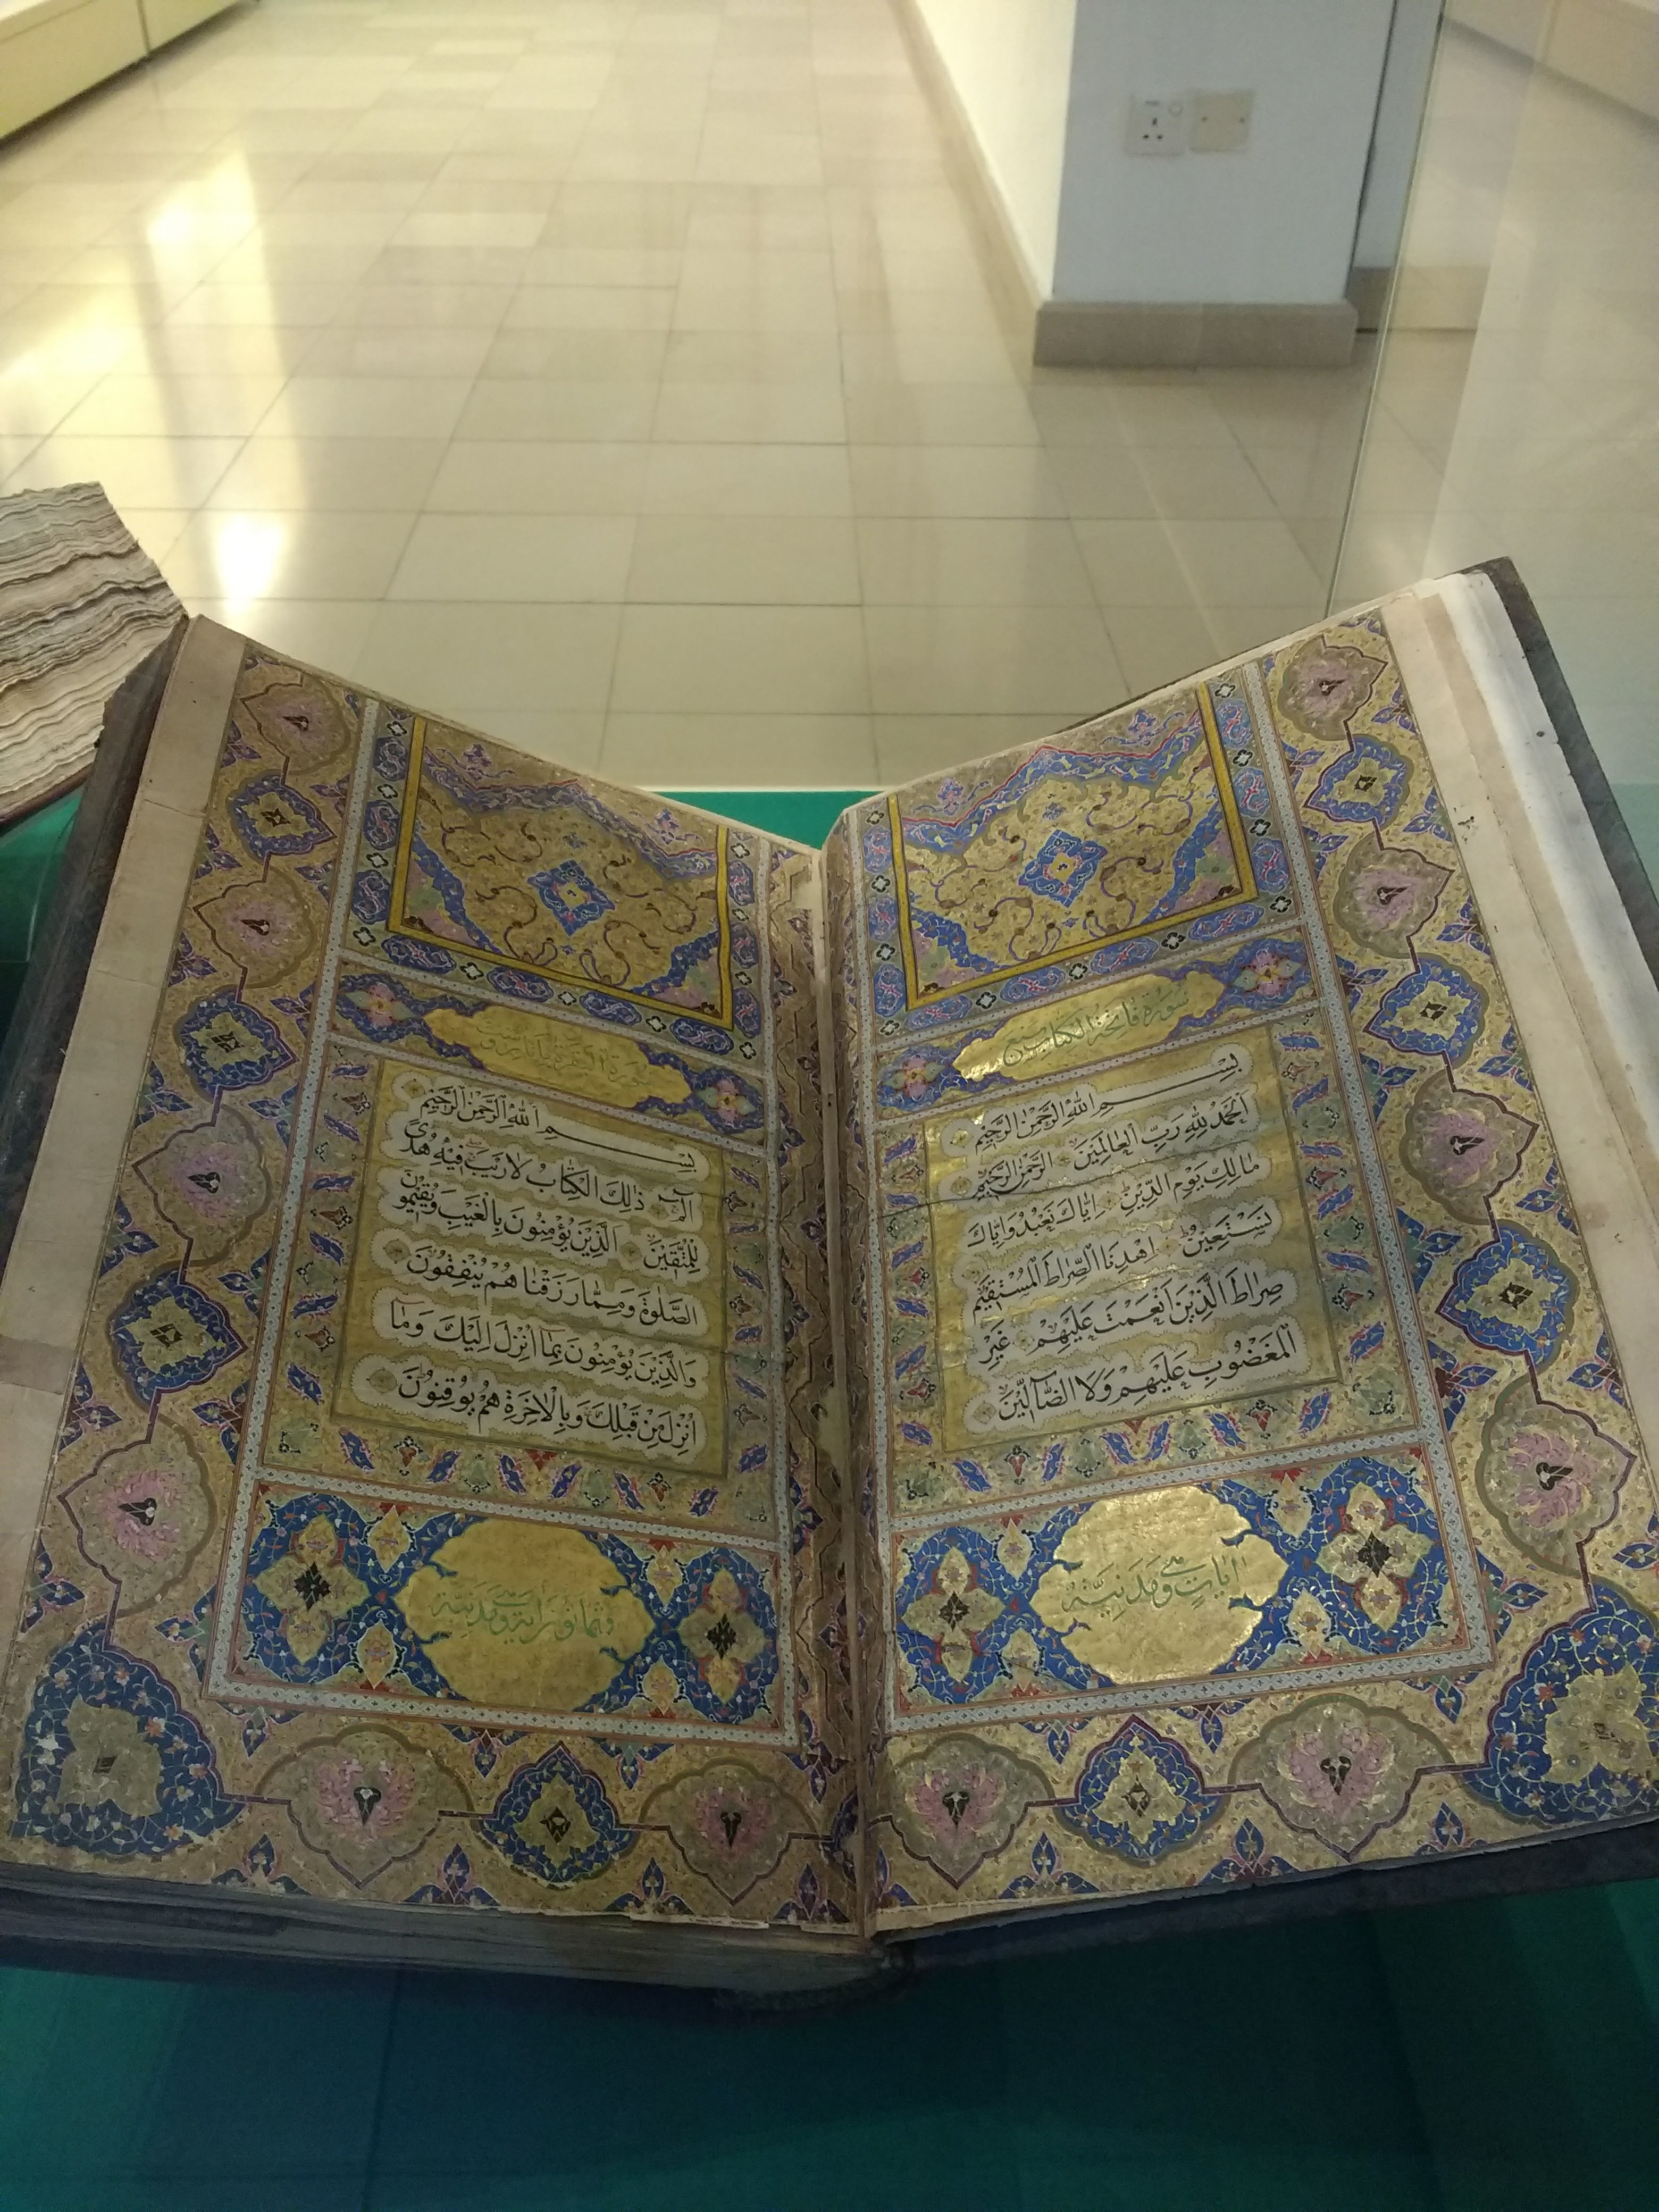 سورة فاتحة الكتاب سبع
بسم الله الرحمن الرحيم
اَلْحَمْدُ لِلّٰهِ رَبِّ الْعَالَمِينَ الرَّحْمٰنِ الرَّحِيمِ
مَالِكِ يَوْمِ الدِّينِ اِيَّاكَ نَعْبُدُ وَاِيَّاكَ
نَسْتَعِينُ اِهْدِنَا الصِّرَاطَ الْمُسْتَقِيمَ
صِرَاطَ الَّذِينَ اَنْعَمْتَ عَلَيْهِمْ غَيْرِ
الْمَغْضُوبِ عَلَيْهِمْ وَلَا الضَّآلِّينَ
ايات مكي ومدنية
بسم الله الرحمن الرحيم
الٓمٓ ذٰلِكَ الْكِتَابُ لَا رَيْبَ فِيْهِ هُدًى
لِلْمُتَّقِينَ الَّذِينَ يُؤْمِنُونَ بِالْغَيْبِ وَيُقِيمُونَ
الصَّلٰوةَ وَمِمَّا رَزَقْنَاهُمْ يُنْفِقُونَ
وَالَّذِينَ يُؤْمِنُونَ بِمَا اُنْزِلَ اِلَيْكَ وَمَا
اُنْزِلَ مِنْ قَبْلِكَ وَبِالْاٰخِرَةِ هُمْ يُوقِنُونَ